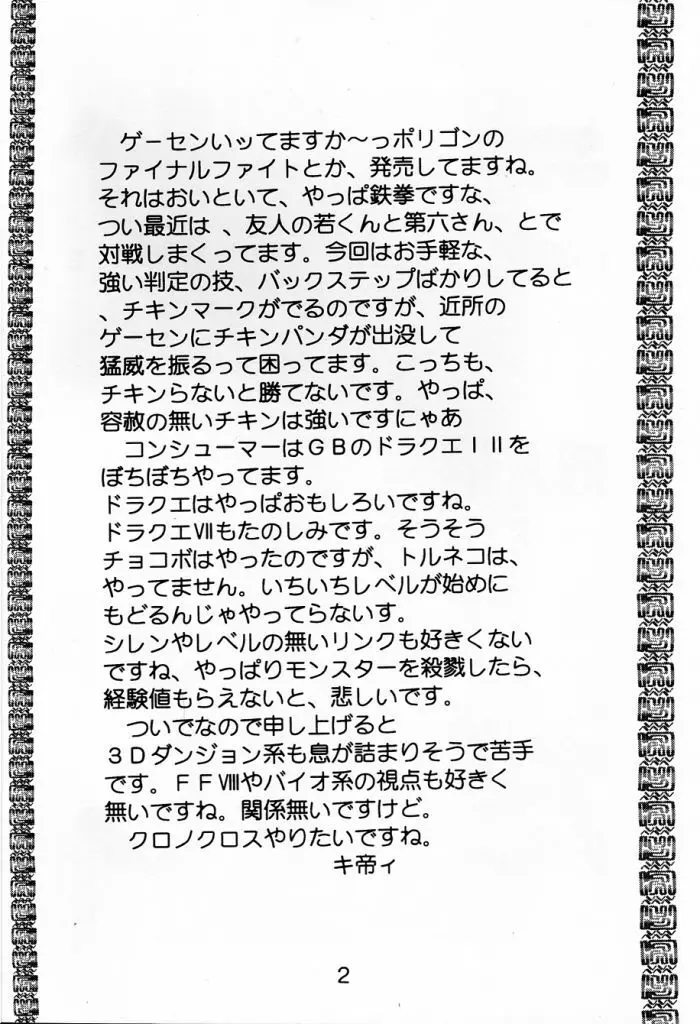 ゲーセンいッてますか～っポリゴンの
ファイナルファイトとか、発売してますね。
それはおいといて、やっぱ鉄拳ですな、
つい最近は 、友人の若くんと第六さん、とで
対戦しまくってます。今回はお手軽な、
強い判定の技、バックステップばかりしてると
、チキンマークがでるのですが、近所の
ゲーセンにチキンパンダが出没して
猛威を振るって困ってます。こっちも、
チキンらないと勝てないです。やっぱ、
容赦の無いチキンは強いですにゃあ
コンシューマーはＧＢのドラクエＩＩＩを
ぼちぼちやってます。
ドラクエはやっぱおもしろいですね。
ドラクエⅦもたのしみです。そうそう
チョコボはやったのですが、トルネコは、
やってません。いちいちレベルが始めに
もどるんじゃやってらないす。
シレンやレベルの無いリンクも好きくない
ですね、やっぱりモンスターを殺戮したら、
経験値もらえないと、悲しいです。
ついでなので申し上げると
３Ｄダンジョン系も息が詰まりそうで苦手
です。ＦＦⅧやバイオ系の視点も好きく
無いですね。関係無いですけど。
クロノクロスやりたいですね。
キ帝ィ
2